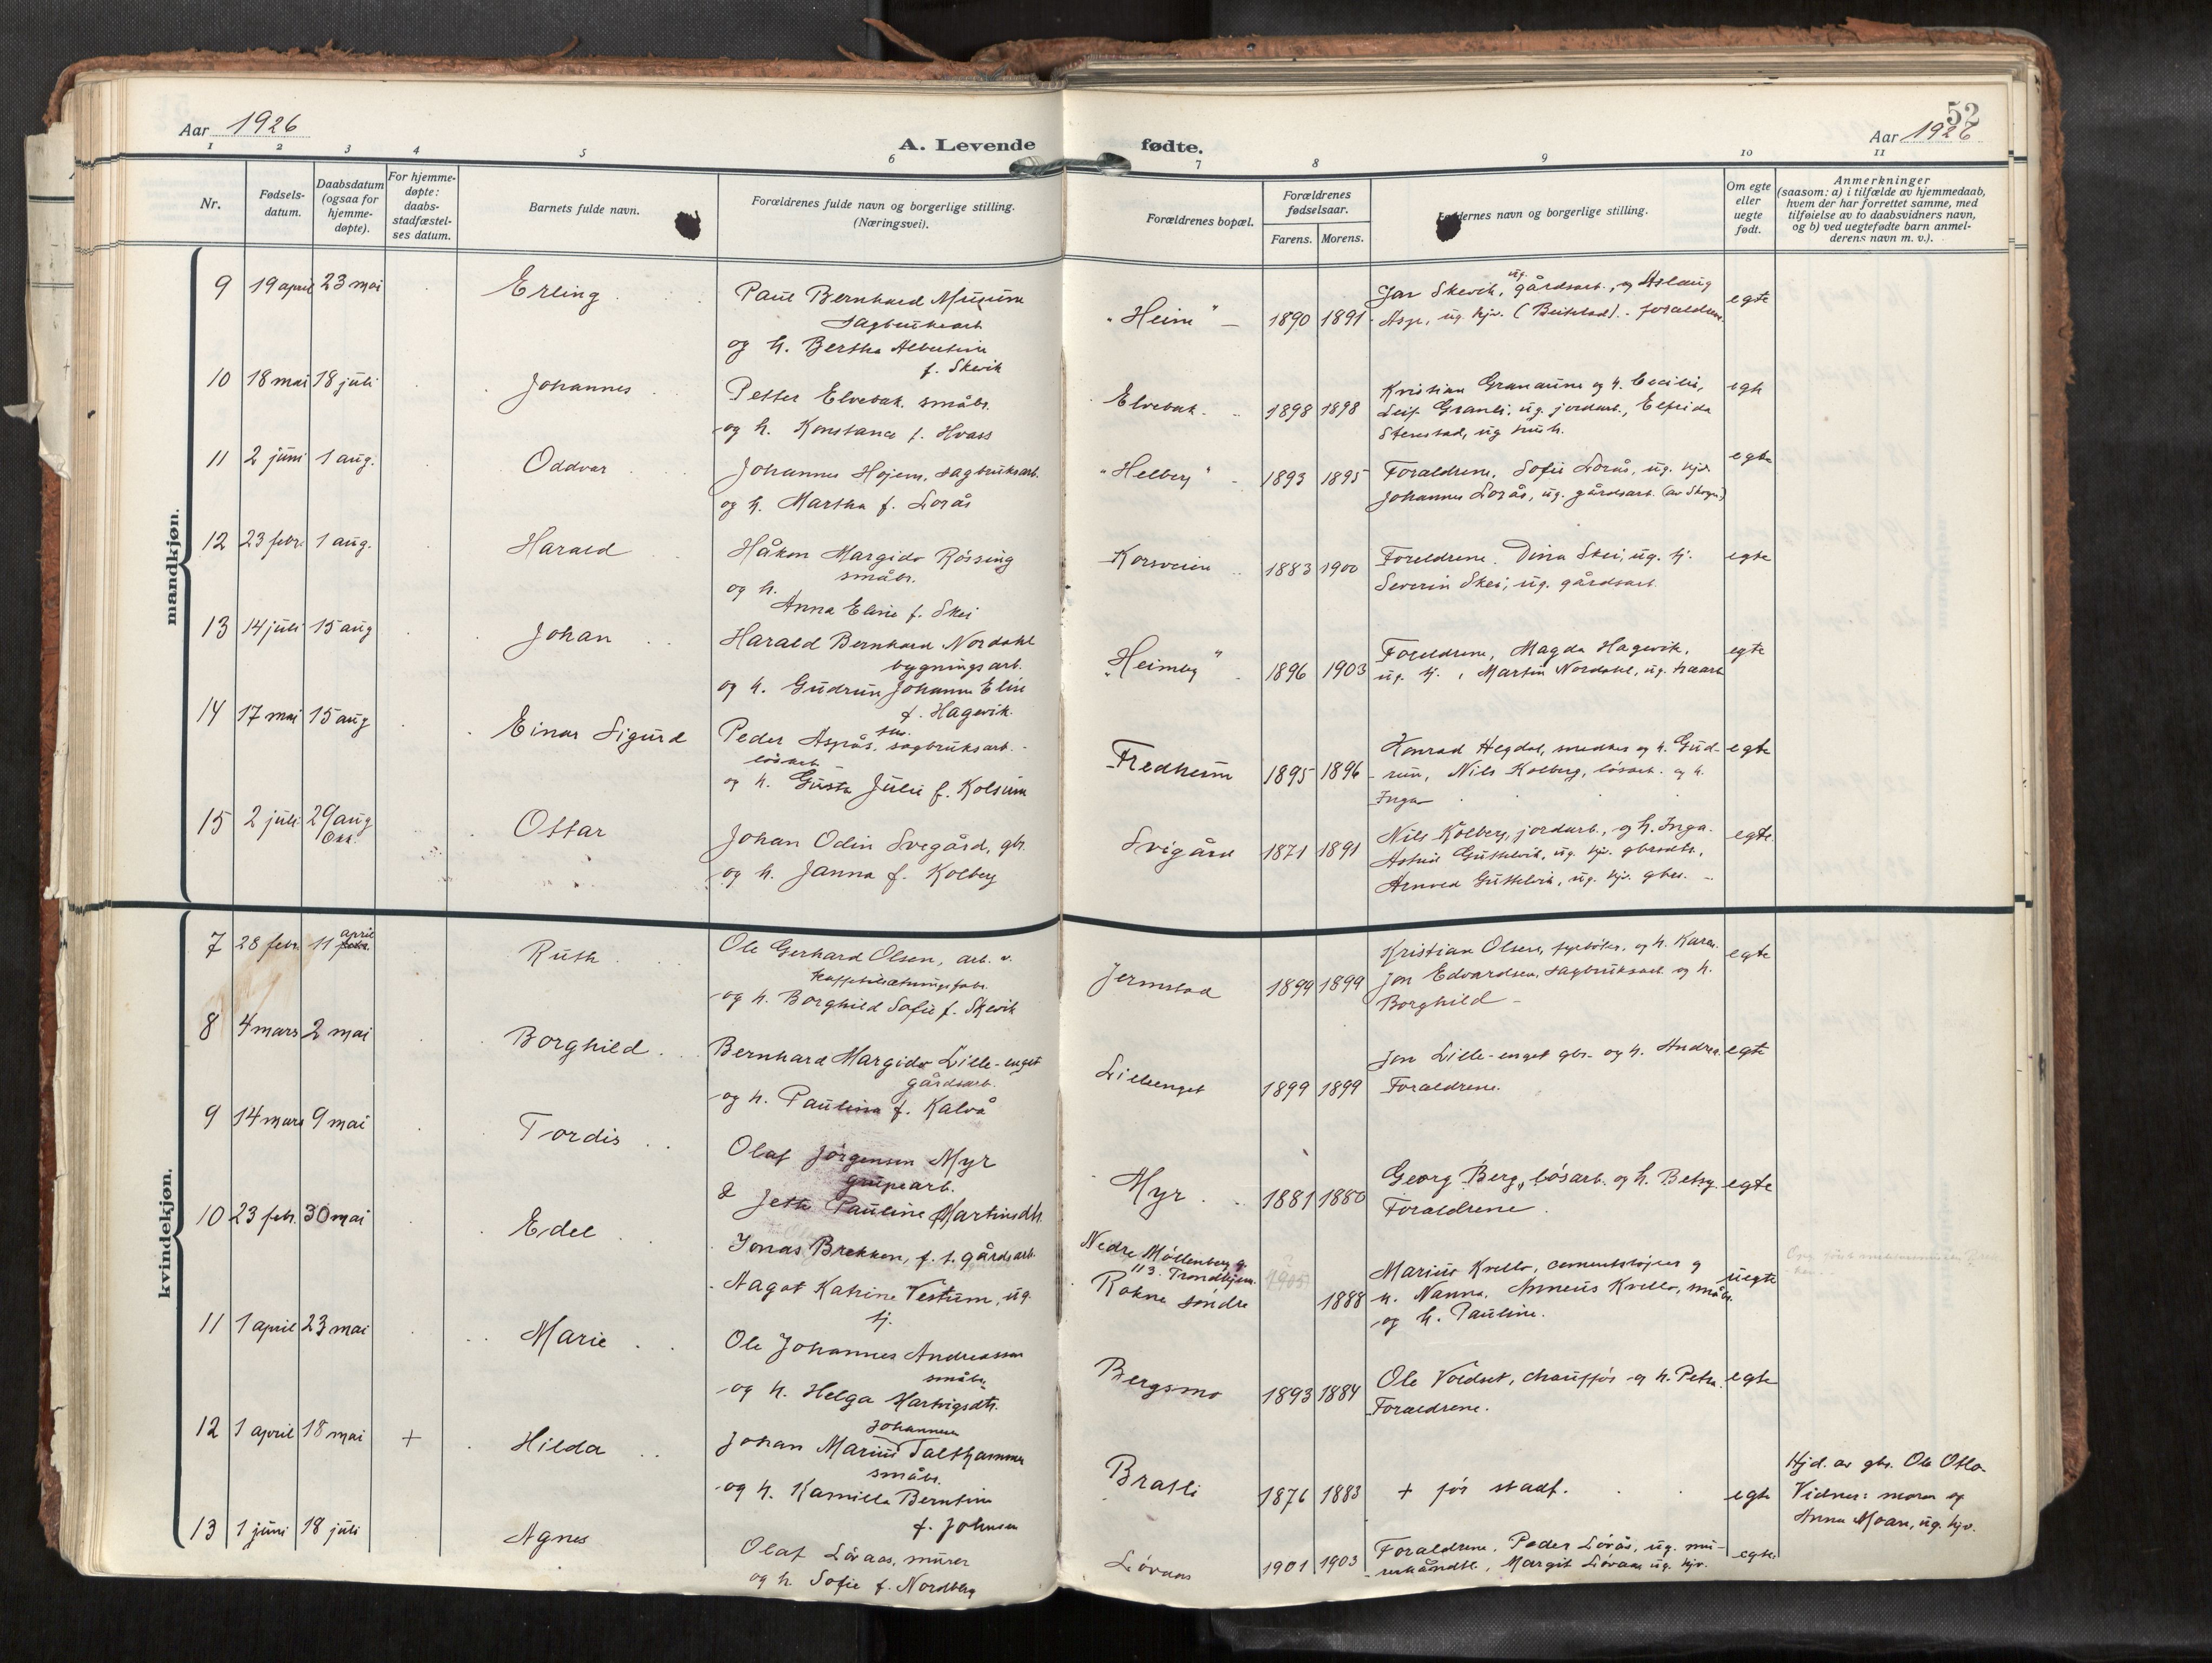 Aar 1926
A. Levende
fødte.
52
Aar 1926
1 2 3 4 5 6 7 8 9 10 11
Nr.
Fødsels-
datum.
Daabsdatum
(ogsaa for
hjemme-
døpte).
For hjemme-
døpte:
daabs-
stadfæstel-
ses datum.
Barnets fulde navn.
Forældrenes fulde navn og borgerlige stilling.
(Næringsvei).
Forældrenes bopæl.
Forældrenes
fødselsaar.
Farens. Morens.
Faddernes navn og borgerlige stilling.
Om egte
eller
uegte
født.
Anmerkninger
(saasom: a) i tilfælde av hjemmedaab,
hvem der har forrettet samme, med
tilføielse av to daabsvidners navn,
og b) ved uegtefødte barn anmel-
derens navn m. v.).
mandkjøn.
9 19 april 23 mai Erling
Paul Bernhard Musum
sagbruksarb.
og h. Bertha Albertine
f. Skevik
"Heim" 1890 1891
Jar Skevik, ug. gårdsarb., og Aslaug
Asp, ug. hjv. (Beitstad). foraldrene
egte
10 18 mai 18 juli Johannes
Petter Elvebak. småbr.
og h. Konstance f. Hvass
Elvebak. 1898 1898
Kristian Granaune og h. Cecilie,
Leif Granli, ug. jordarb., Elfrida
Stenstad, ug.
egte
11 2 juni 1 aug. Oddvar
Johannes Hojem, sagbruksarb.
og h. Martha f. Lorås
"Helberg" 1893 1895
Foraldrene, Sofie Lorås, ug. hjv.
Johannes Lorås, ug. gårdsarb. (av Skogn)
egte
12 23 febr. 1 aug. Harald
Håkon Margido Røssing
småbr.
og h.
Anna Elise f. Skei
Korsveien 1883 1900
Foreldrene. Dina Skei, ug. tj.
Severin Skei, ug. gårdsarb.
egte
13 14 juli 15 aug Johan
Harald Bernhard Nordahl
bygningsarb.
og h. Gudrun Johanne Elise
f. Hagevik.
"Heimly" 1896 1903
Foreldrene, Magda Hagevik,
ug. tj., Martin Nordahl, ug.
egte
14 17 mai 15 aug Einar Sigurd
Peder Aspås, sagbruksarb.
løsarb.
og h. Gusta Julie f. Kolsum
Fredheim 1895 1896
Konrad Hegdal, snedker og h. Gud-
run, Nils Kolberg, løsarb. og h.
Inga
egte
15 2 juli 29 aug Ottar
Johan Odin Svegård, gbr.
og h. Janna f. Kolberg
Svigård 1871 1891
Nils Kolberg, jordarb., og h. Inga.
Astrid Guttelvik, ug. hjv.
Arnold Guttelvik, ug. hjv.
egte
kvindekjøn.
7 28 febr. 11 april Ruth
Ole Gerhard Olsen, arb. v.
og h. Borghild Sofie f. Skevik
Jermstad 1899 1899
Kristian Olsen, fyrbøter, og h. Karen.
Jon Edvardsen, sagbruksarb. og h.
Borghild
egte
8 4 mars 2 mai Borghild
Bernhard Margido Lille-enget
gårdsarb.
og h. Paulina f. Kalvå
Lilleenget 1899 1899
Jon Lille-enget gbr. og h. Andrea.
Foraldrene.
egte
9 14 mars 9 mai Tordis
Olaf Jørgensen Myr
grubearb.
& Jette Pauline Martinsdtr.
Myr 1881 1880
Georg Berg, løsarb. og h. Betsy.
Foraldrene.
egte
10 23 febr. 30 mai Edel
Jonas Brekken, f. t. gårdsarb.
Aagot Katrine Vestum, ug.
tj.
Nedre Møllenberg g.
113. Trondhjem.
Rokne søndre
1905 1888
Marius Krello, cementstøper og
h. Nanna. Anneus Krello, småbr.
og h. Pauline.
uegte
11 1 april 23 mai Marie
Ole Johannes Andreassen
småbr.
og h. Helga Hartvigsdtr.
Bergsmo 1893 1884
Ole Voldset, chauffør og h. Petra.
Foraldrene.
egte
12 1 april 18 mai + Hilda
Johannesen
Johan Marius Salthammer
småbr.
og h. Kamilla Berntine
f. Johnsen
Bratli 1876 1883
+ før stadf.
egte
Hjd. av gbr. Ole Otlo
Vidner: moren og
Anna Moan, ug. hjv.
13 1 juni 18 juli Agnes
Olaf Løvaas, murer
og h. Sofie f. Nordberg
Løvaas 1901 1903
Foraldrene, Peder Løvås, ug. mu-
rerhåndtl., Margit Løvaas ug. hjv.
egte